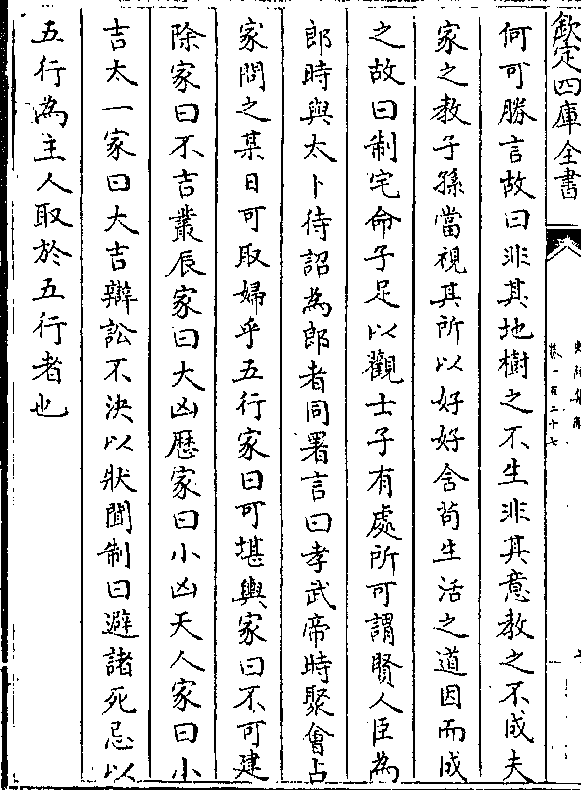 欽定四庫全書
史記集解
卷一百二十七
何可勝言故曰非其地樹之不生非其意教之不成夫
家之教子孫當視其所以好好含茍生活之道因而成
之故曰制宅命子足以觀士子有處所可謂賢人臣為
郎時與太卜待詔為郎者同署言曰孝武帝時聚會占
家問之某日可取婦乎五行家曰可堪輿家曰不可建
除家曰不吉叢辰家曰大凶歴家曰小凶天人家曰小
吉太一家曰大吉辯訟不決以狀聞制曰避諸死忌以
五行為主人取於五行者也